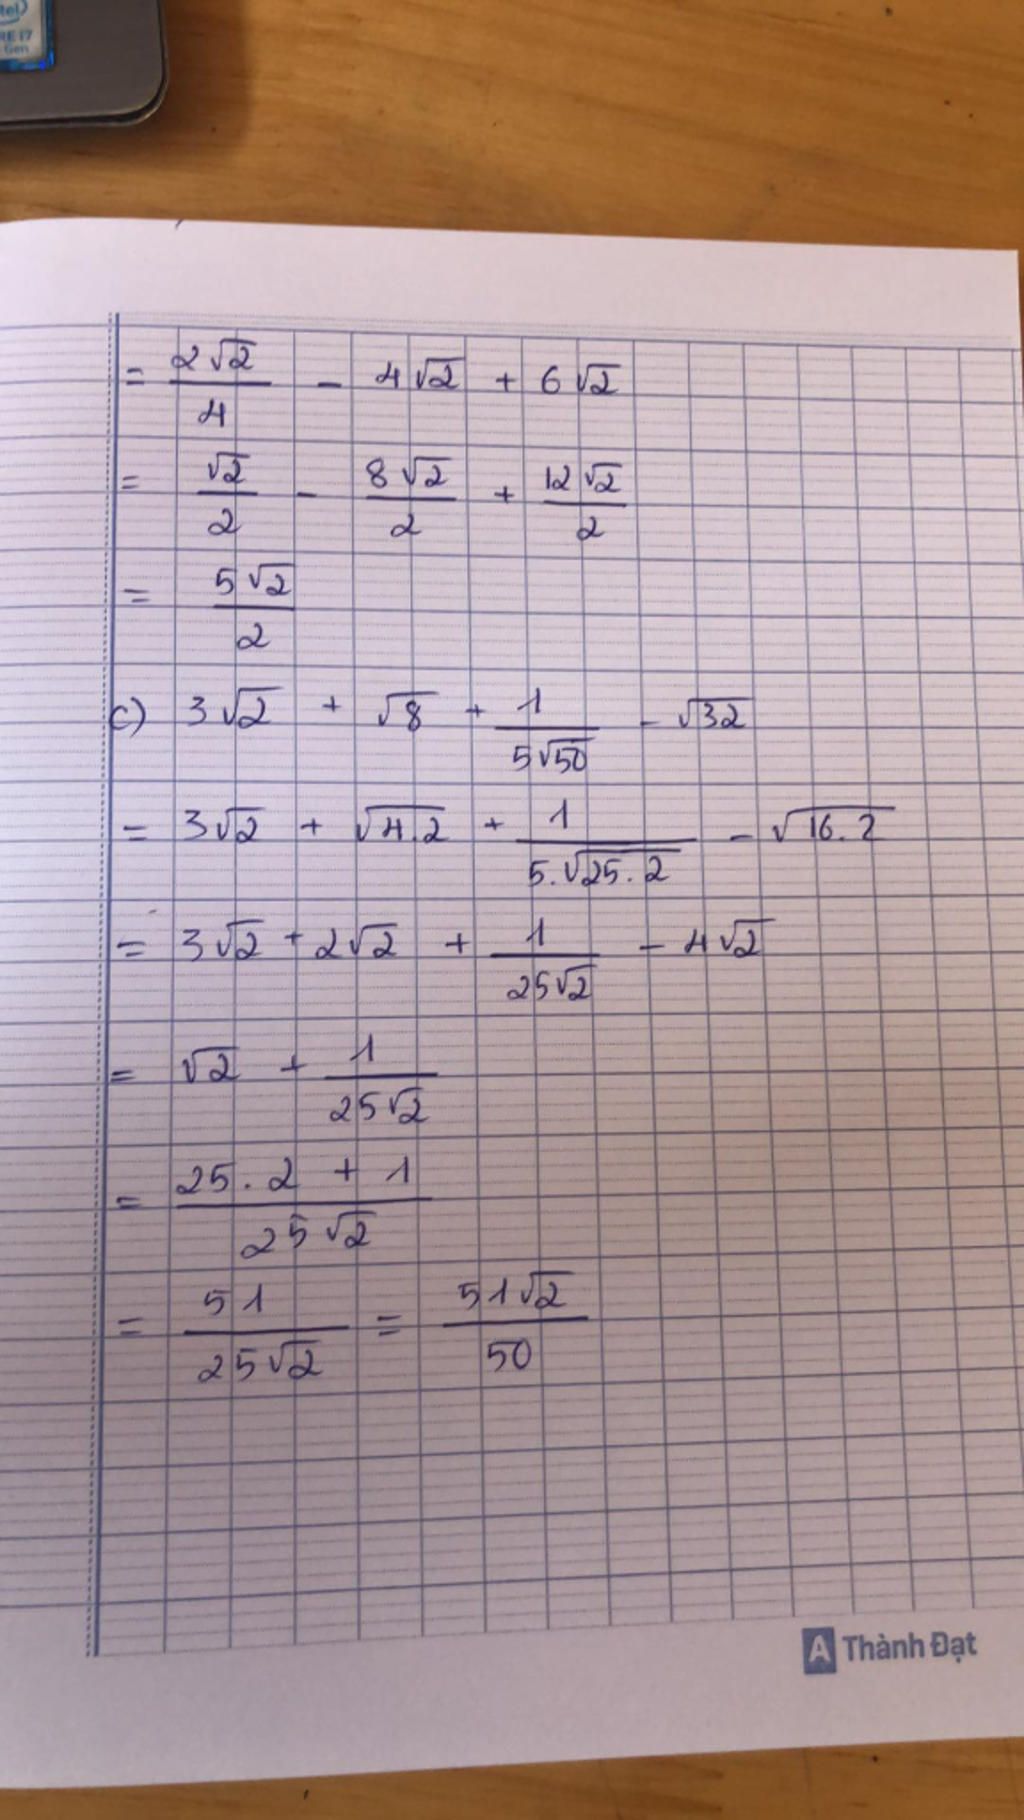 tel)
RE i7
Gen
= 2√2/4 - 4√2 + 6√2
= √2/2 - 8√2/2 + 12√2/2
= 5√2/2
c) 3√2 + √8 + 1/(5√50) - √32
= 3√2 + √(4.2) + 1/(5.√(25.2)) - √(16.2)
= 3√2 + 2√2 + 1/(25√2) - 4√2
= √2 + 1/(25√2)
= (25.2 + 1)/(25√2)
= 51/(25√2) = 51√2/50
A Thành Đạt